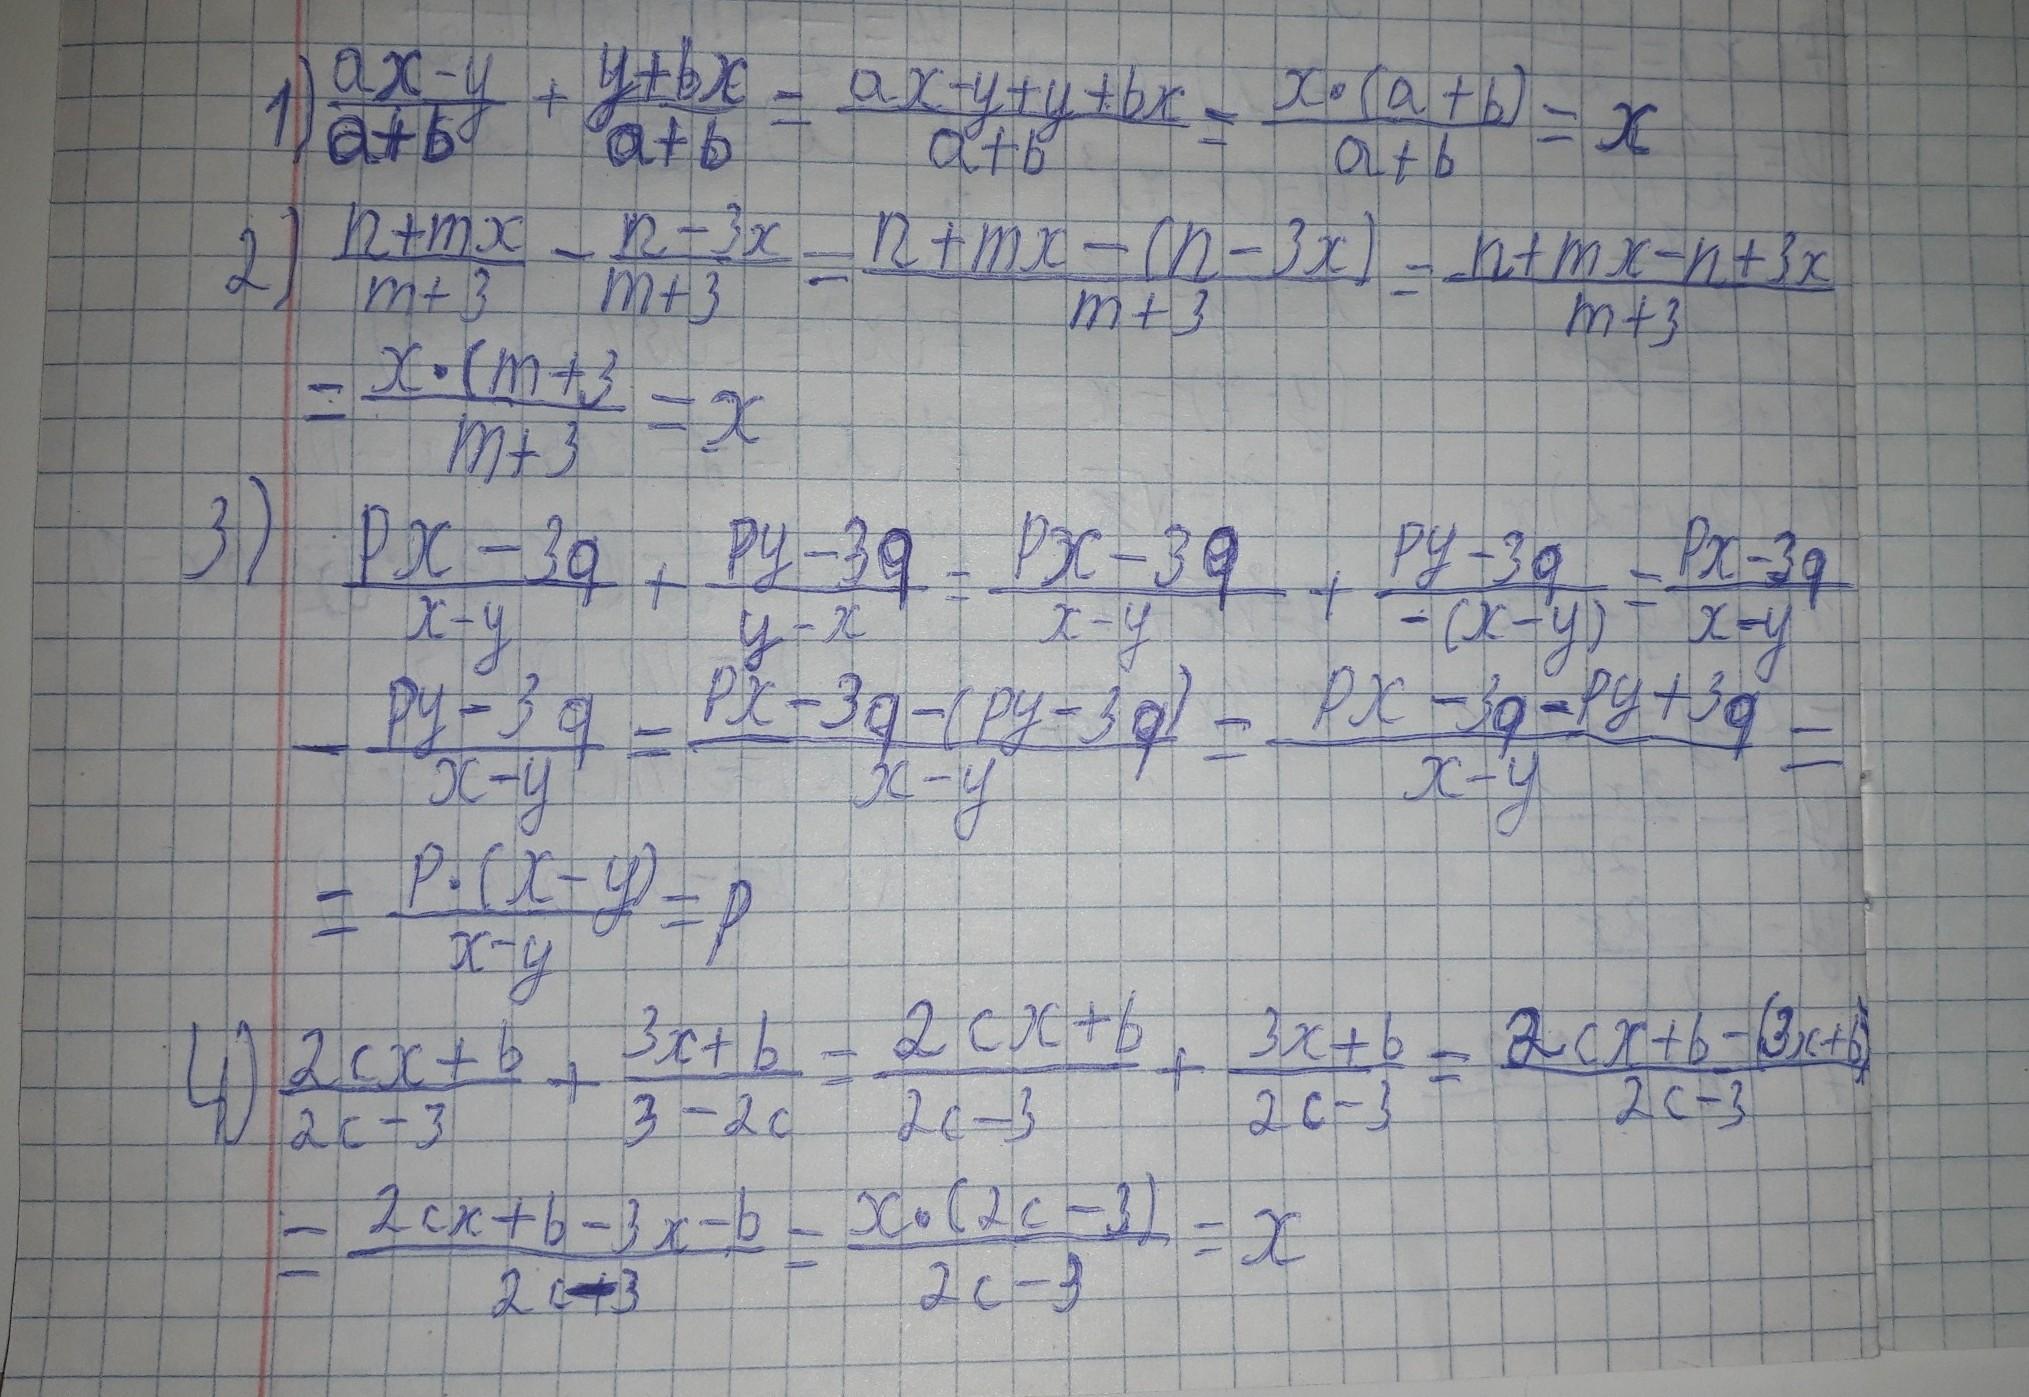 1) (ax-y)/(a+b) + (y+bx)/(a+b) = (ax-y+y+bx)/(a+b) = (x·(a+b))/(a+b) = x
2) (n+mx)/(m+3) - (n-3x)/(m+3) = (n+mx-(n-3x))/(m+3) = (n+mx-n+3x)/(m+3)
= (x·(m+3)/(m+3) = x
3) (px-3q)/(x-y) + (py-3q)/(y-x) = (px-3q)/(x-y) + (py-3q)/(-(x-y)) = (px-3q)/(x-y)
- (py-3q)/(x-y) = (px-3q-(py-3q))/(x-y) = (px-3q-py+3q)/(x-y) =
= (p·(x-y))/(x-y) = p
4) (2cx+b)/(2c-3) + (3x+b)/(3-2c) = (2cx+b)/(2c-3) + (3x+b)/(2c-3) = (2cx+b-(3x+b))/(2c-3)
= (2cx+b-3x-b)/(2c-3) = (x·(2c-3))/(2c-3) = x